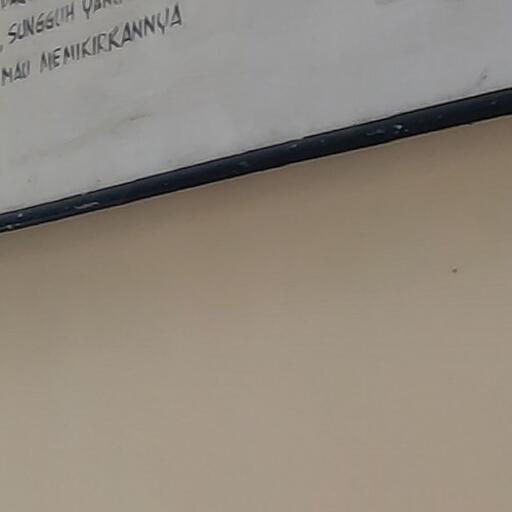 , SUNGGUH YANG
MAU MEMIKIRKANNYA